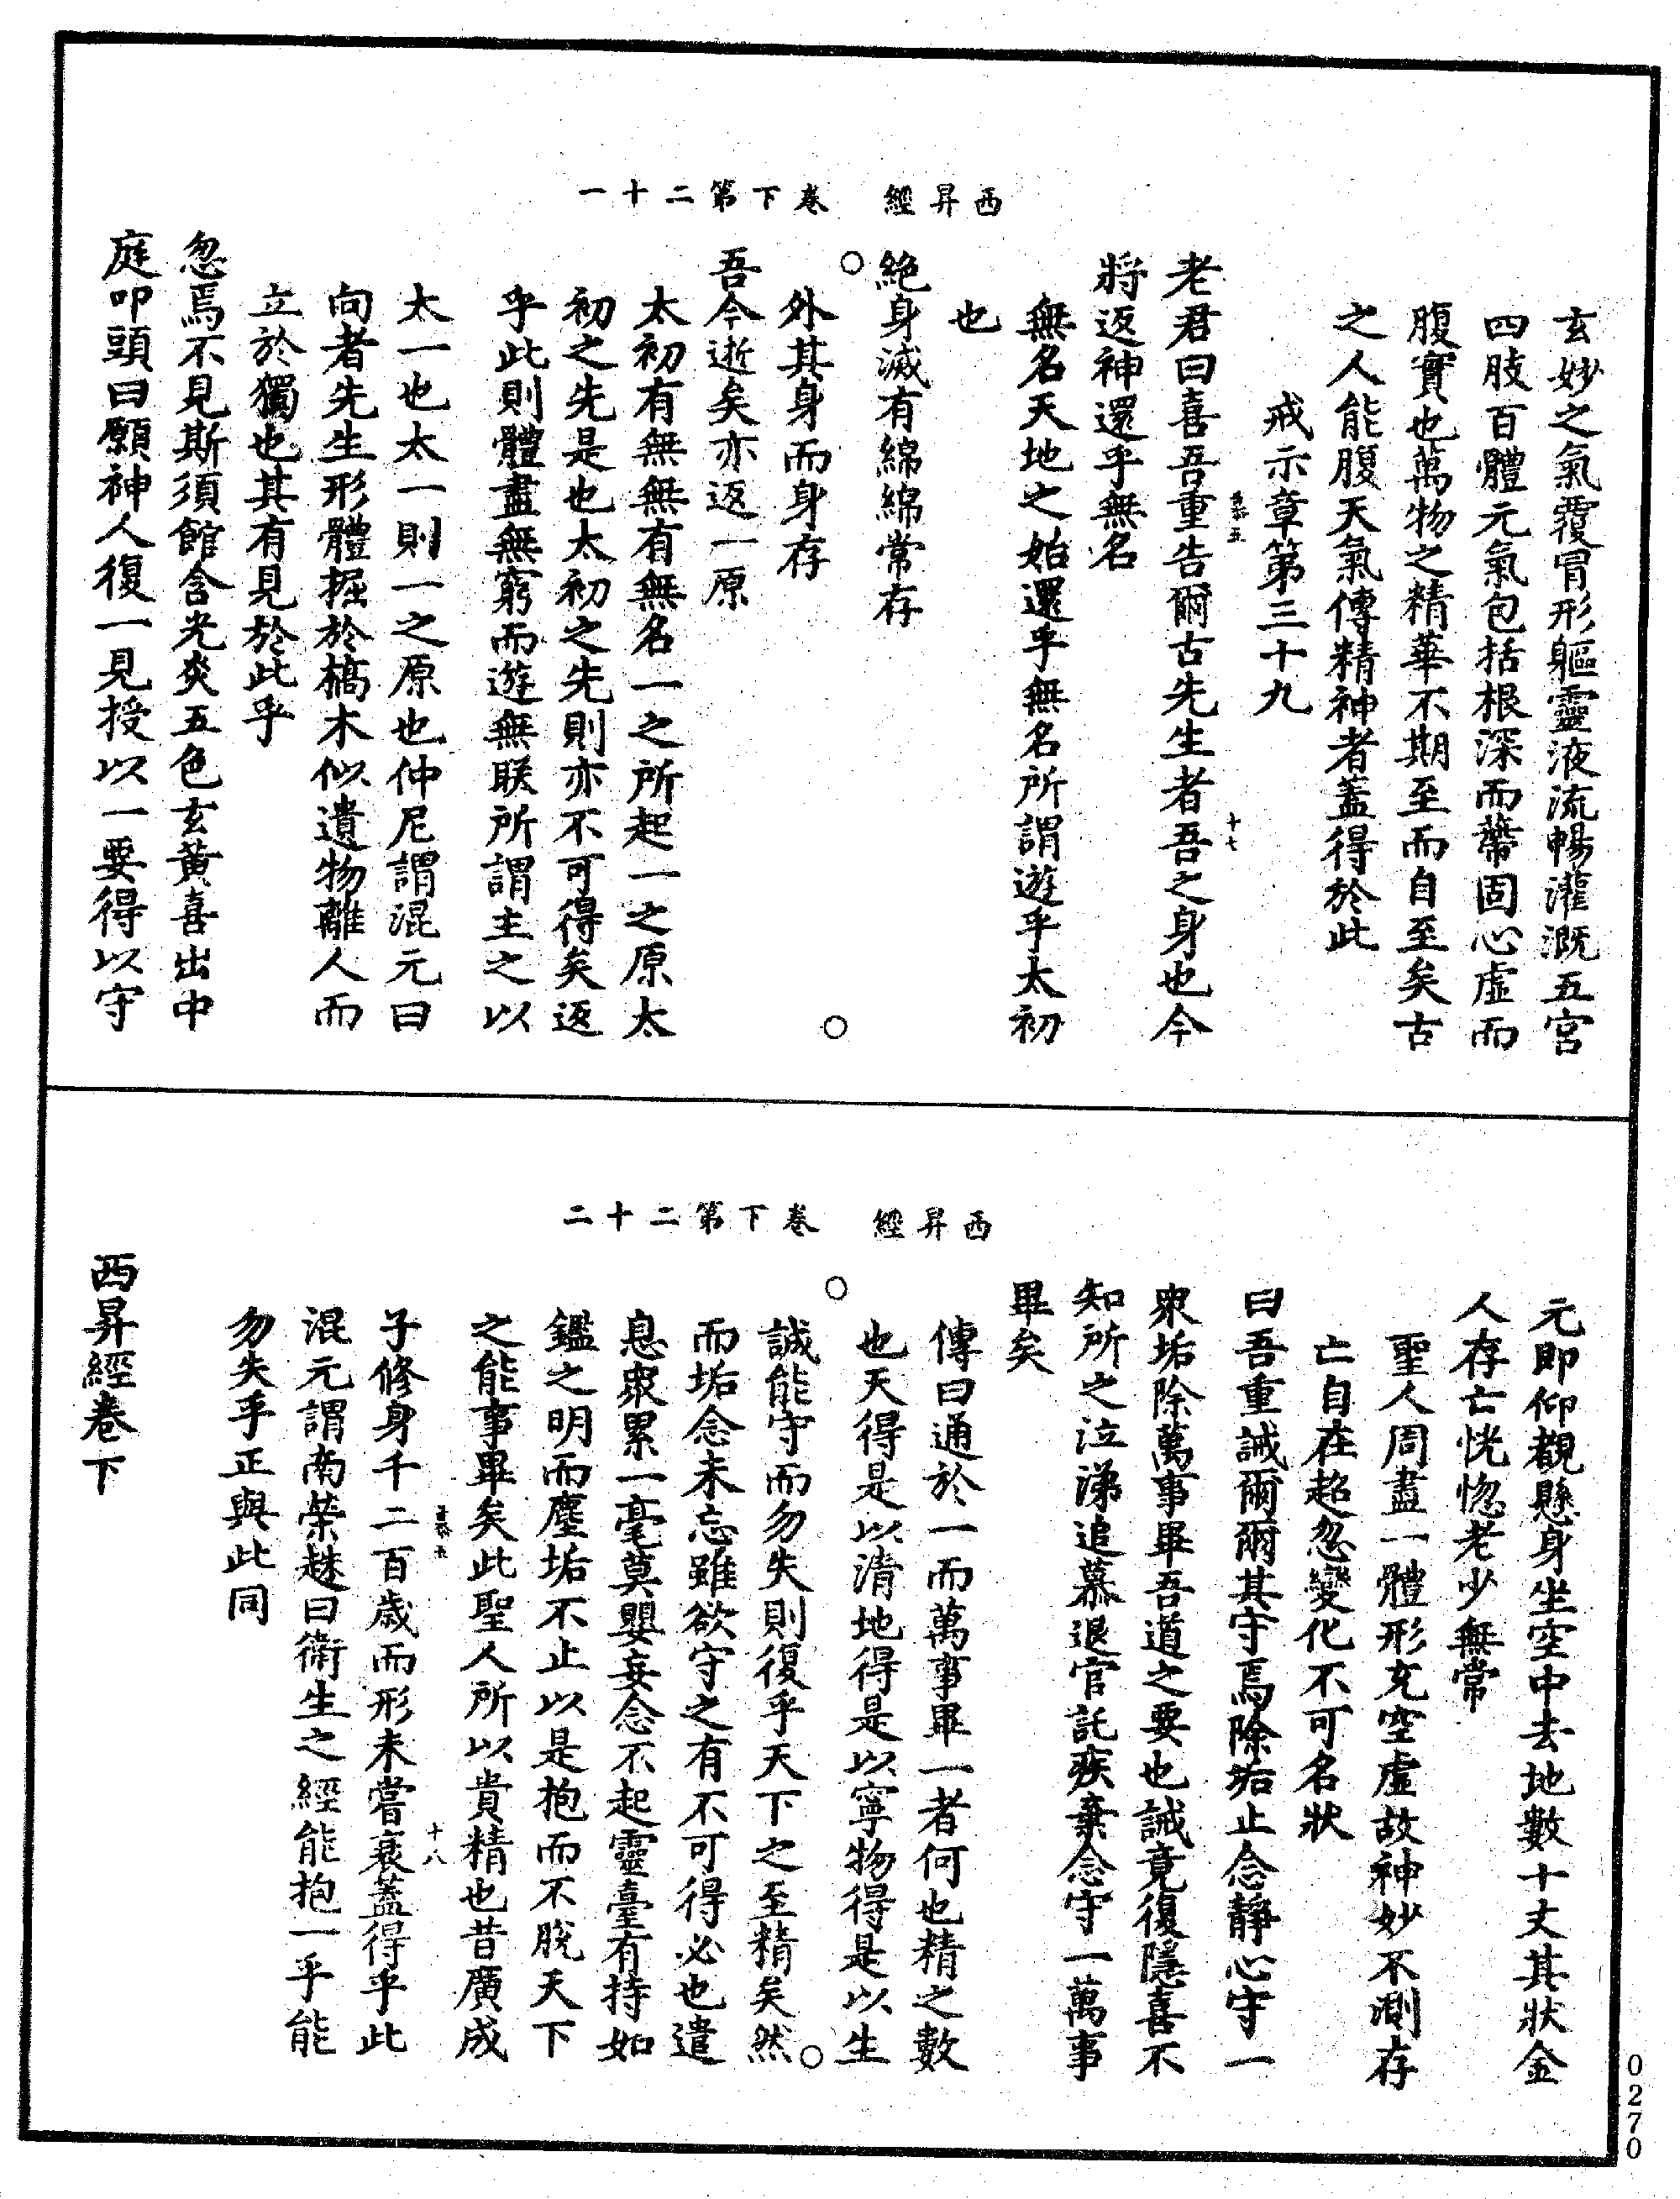 西昇經 卷下第二十一
玄妙之氣覆冐形軀靈液流暢灌溉五宮
四肢百體元氣包括根深而蔕固心虛而
腹實也萬物之精華不期至而自至矣古
之人能腹天氣傳精神者蓋得於此
戒示章第三十九
十七
老君曰喜吾重告爾古先生者吾之身也今
將返神還乎無名
無名天地之始還乎無名所謂遊乎太初
也
絶身滅有綿綿常存
外其身而身存
吾今逝矣亦返一原
太初有無無有無名一之所起一之原太
初之先是也太初之先則亦不可得矣返
乎此則體盡無窮而遊無朕所謂主之以
太一也太一則一之原也仲尼謂混元曰
向者先生形體掘於槁木似遺物離人而
立於獨也其有見於此乎
忽焉不見斯須館舍光炎五色玄黃喜出中
庭叩頭曰願神人復一見授以一要得以守
西昇經 卷下第二十二
元即仰覩懸身坐空中去地數十丈其狀金
人存亡恍惚老少無常
聖人周盡一體形充空虛故神妙不測存
亡自在超忽變化不可名狀
曰吾重誡爾爾其守焉除垢止念靜心守一
衆垢除萬事畢吾道之要也誡竟復隱喜不
知所之泣涕追慕退官託疾棄念守一萬事
畢矣
傳曰通於一而萬事畢一者何也精之數
也天得是以清地得是以寧物得是以生
誠能守而勿失則復乎天下之至精矣然
而垢念未忘雖欲守之有不可得必也遣
息衆累一毫莫嬰妄念不起靈臺有持如
鑑之明而塵垢不止以是抱而不脫天下
之能事畢矣此聖人所以貴精也昔廣成
十八
子修身千二百歲而形未嘗衰蓋得乎此
混元謂南榮趎曰衛生之經能抱一乎能
勿失乎正與此同
西昇經卷下
0270